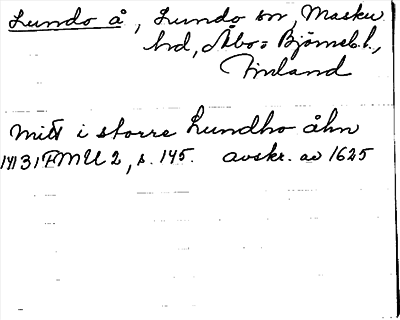 Lundo å, Lundo sn, Masku
hd, Åbo- Björneb. l.,
Finland
mitt i storre Lundho åhn
1431 FMU 2, s. 145. avskr. av 1625